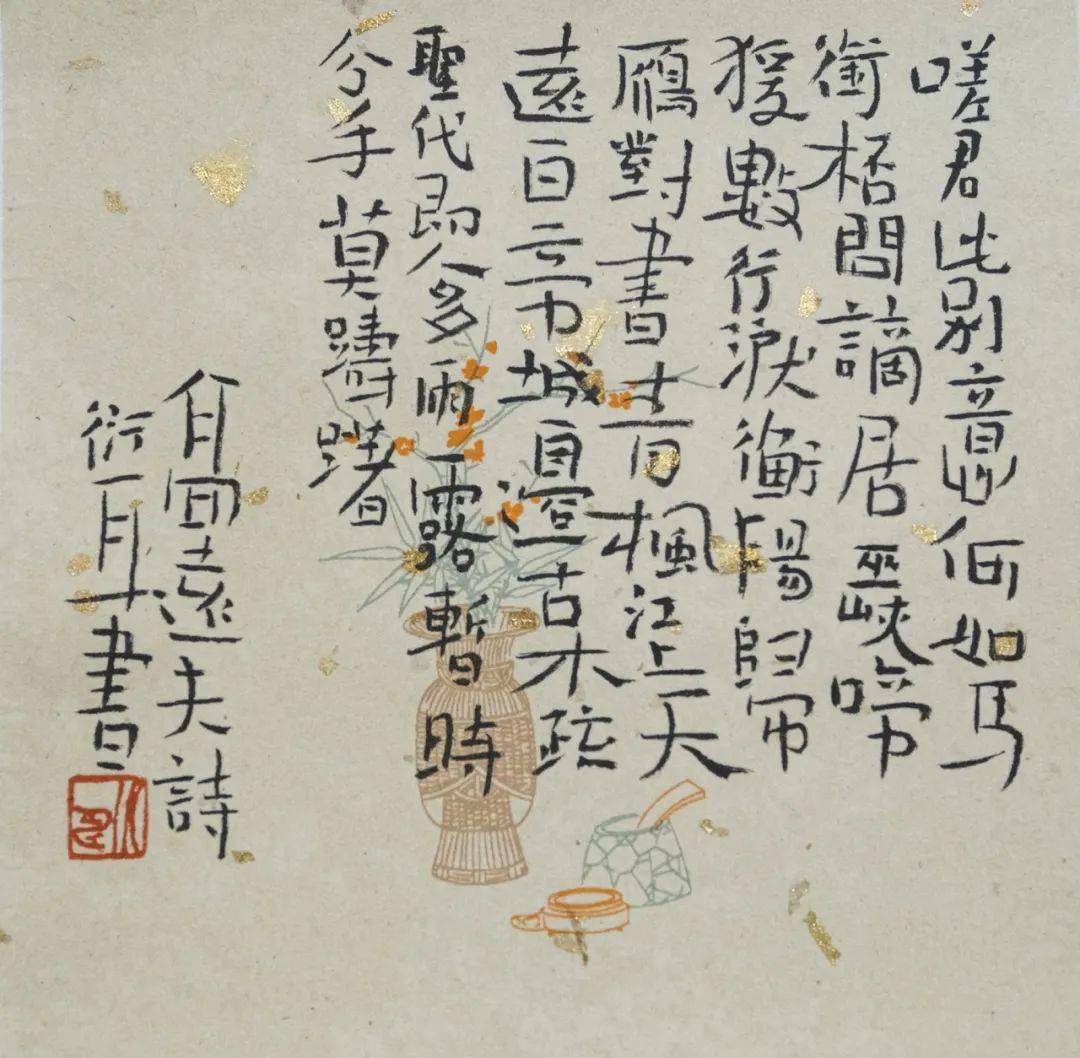 嗟君此別意何如馬
銜桮問謫居巫峽啼
猨數行淚衡陽歸
鴈對書青楓江上天
遠白帝城邊古木疏
聖代即今多雨露暫時
分手莫躊躇
達夫詩
衍書